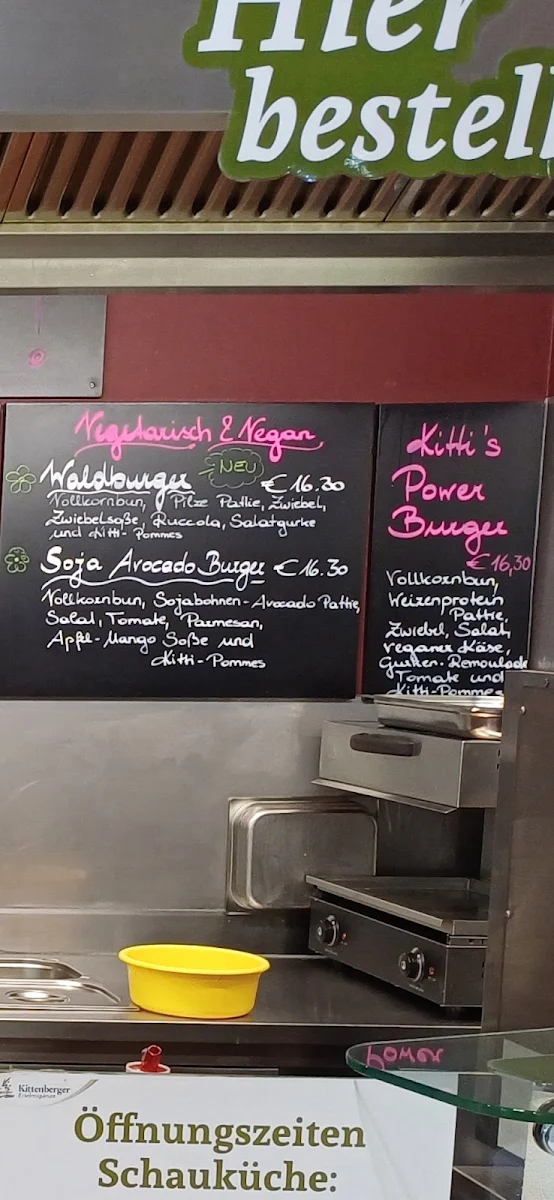 Hier
bestell
Vegetarisch & Vegan
Waldburger NEU €16.30
Vollkornbun, Pilze Pattie, Zwiebel,
Zwiebelsoße, Ruccola, Salatgurke
und Kitti-Pommes
Soja Avocado Burger €16.30
Vollkornbun, Sojabohnen-Avocado Pattie,
Salat, Tomate, Parmesan,
Apfel-Mango Soße und
Kitti-Pommes
Kitti's
Power
Burger
€16,30
Vollkornbun,
Weizenprotein
Pattie,
Zwiebel, Salat,
veganer Käse,
Gurken-Remoulade
Tomate und
Kitti-Pommes
Kittenberger
Erlebnisgärten
Öffnungszeiten
Schauküche: